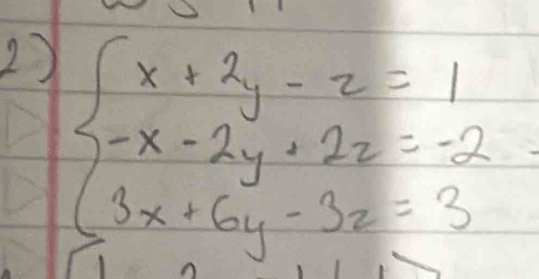 2) x + 2y - z = 1
-x - 2y + 2z = -2
3x + 6y - 3z = 3